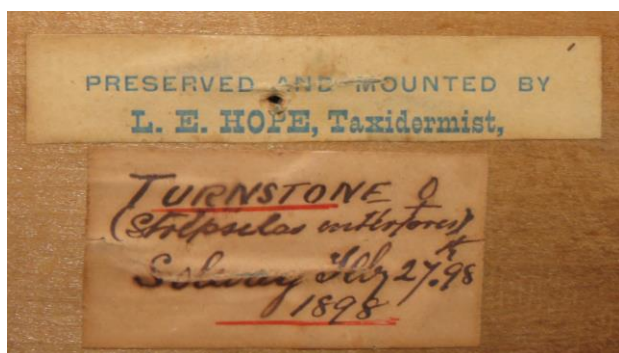 PRESERVED AND MOUNTED BY
L. E. HOPE, Taxidermist,
TURNSTONE ♀
(Strepsilas interpres)
Solway Feby 27th 98
1898